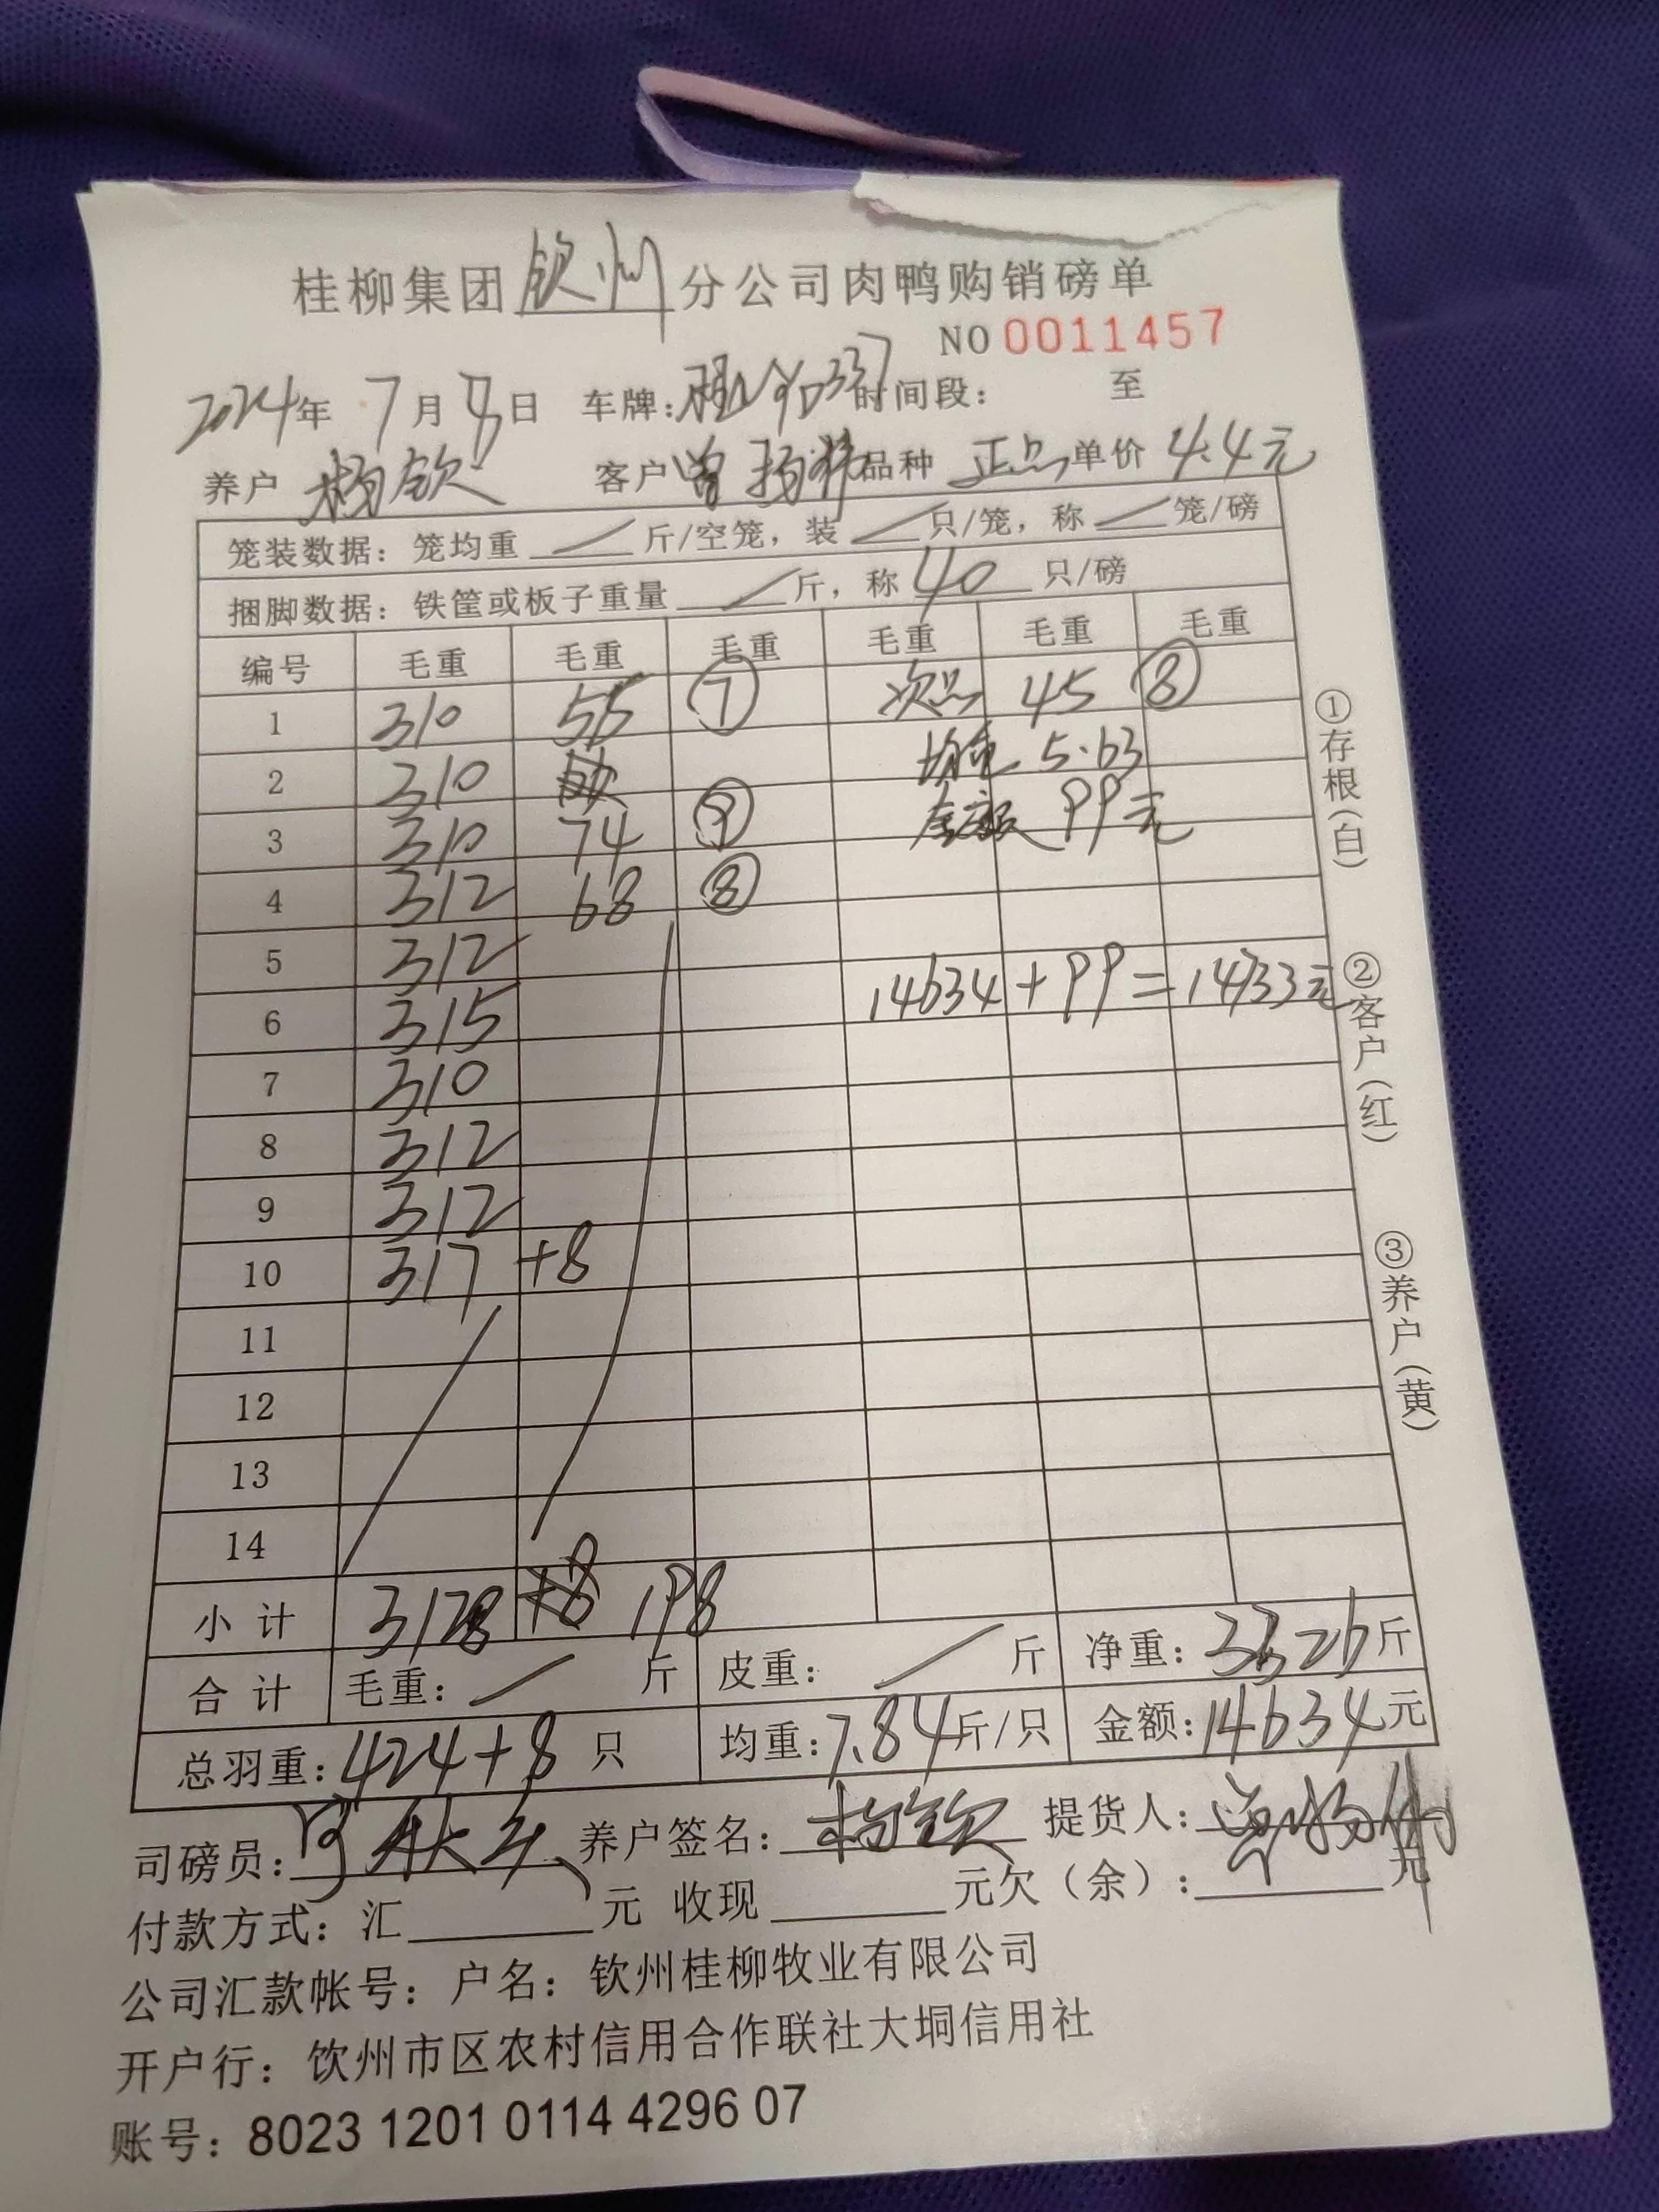 桂柳集团钦州分公司肉鸭购销磅单
NO 0011457
2024年 7月 日 车牌: 时间段: 至
养户 杨钦 客户 曾扬 品种 正品 单价 4.4元
笼装数据：笼均重 / 斤/空笼，装 / 只/笼，称 / 笼/磅
捆脚数据：铁筐或板子重量 / 斤，称 40 只/磅
编号 毛重 毛重 毛重 毛重 毛重 毛重
1 310 55 ⑦ 次品 45 ⑧
2 310 均重 5.63
3 310 74 ⑨ 金额 99元
4 312 68 ⑧
5 312
6 315 14634 + 99 = 14733元
7 310
8 312
9 312
10 317 +8
11
12
13
14
小计 3128 +8 198
合计 毛重： / 斤 皮重： / 斤 净重：3326斤
总羽重：424+8 只 均重：7.84斤/只 金额：14634元
司磅员： 养户签名：杨钦 提货人：
付款方式：汇 元 收现 元欠（余）： 元
公司汇款帐号：户名：钦州桂柳牧业有限公司
开户行：钦州市区农村信用合作联社大垌信用社
账号：8023 1201 0114 4296 07
①存根(白)
②客户(红)
③养户(黄)